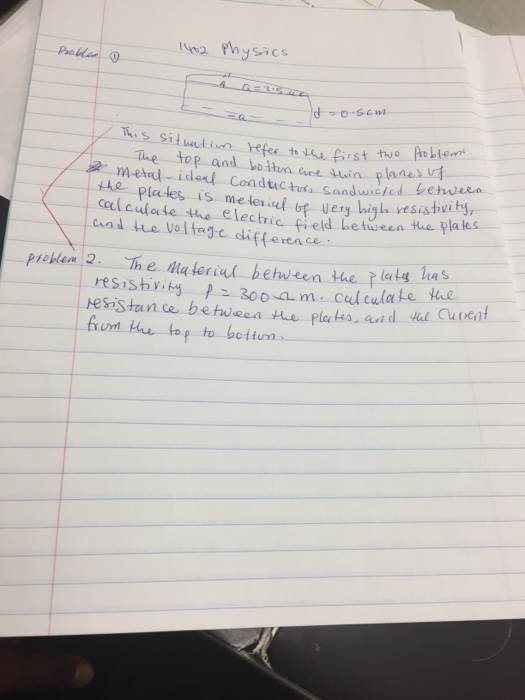 Problem ① 1402 Physics
A Q = 2.5 μC
- - = Q - - - d = 0.5cm
This situation refer to the first two Problems.
The top and bottom are thin planes of
metal-ideal conductors sandwiched between
the plates is meterial of very high resistivity,
calculate the electric field between the plates
and the voltage difference.
problem 2. The material between the plates has
resistivity ρ = 300 Ωm. calculate the
resistance between the plates, and the current
from the top to bottom.